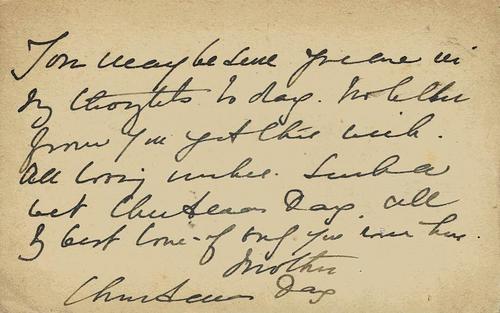 You may be sure you are in
my thoughts to day. No letter
from you yet this week.
All loving wishes. Such a
wet Christmas Day. all
my best love - if only you were here.
Mother
Christmas Day